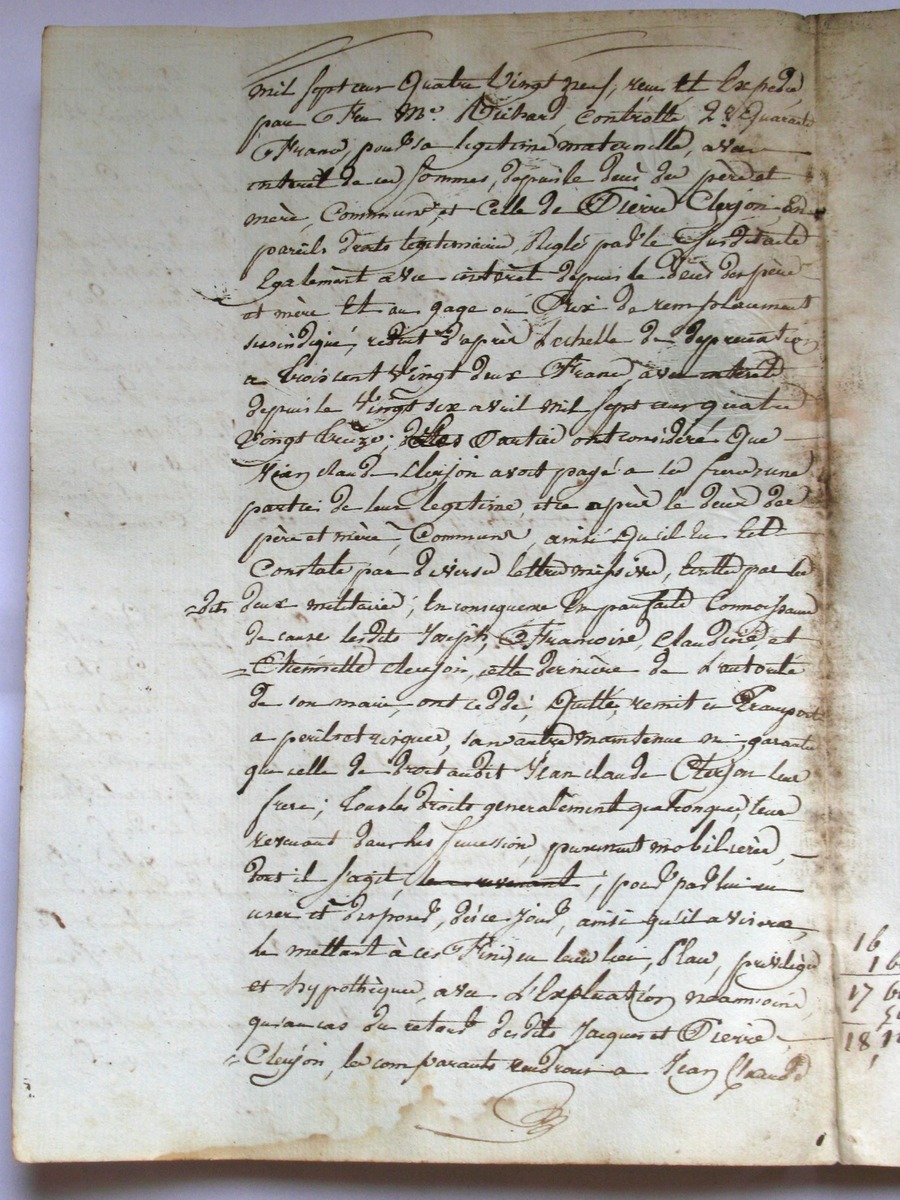 mil sept cent Quatre Vingt neuf, recu Et Expedié
par Feu Me. Richard, Controllé, 2°. Quarante
Franc, pour sa legitime maternelle, avec
interet de ces sommes, depuis le deces des père et
mère, Communs, et Celle de Pierre Clerjon, En
pareils droits legitimaire Reglés par le Susdit acte
Egalement avec interet depuis le deces des père
et mère Et au gage ou Prix de remplacement
susindiqué, reduit d'après L'echelle de depreciation
a trois cent Vingt deux Franc avec interet
depuis le Vingt six avril mil sept cent quatre
Vingt treize; Parties ont consideré Que
Jean claude Clerjon avoit payé a ses freres une
partie de leur legitime, et ce après le deces des
père et mère, Communs, ainsi Qu'il En Est
Constaté par diverses lettres missives, Ecrittes par les
=dits deux militaires; En consequence En parfaite Connoissance
de cause lesdits Joseph, Francoise, Claudine, et
=Etiennette clerjon, cette derniere de L'autorité
de son mari, ont ceddé, Quitté, remit et Transporté
a perils et risques, sans autre maintenue ni garantie
que celle de droit audit Jean claude Clerjon leur
frere; tous les droits generalement quelconques, leur
revenant dans les succession, purement mobilieres,
dont il s'agit, ; pour par lui en
user et disposer, dès ce jour, ainsi qu'il avisera,
le mettant à ces Fins en leur lieu, Place, privilège
et hypothèque, avec L'Explication néamoins
qu'au cas du retour desdits Jacques et Pierre
=Clerjon, les comparants rendront a Jean Claude
16
1
17
18